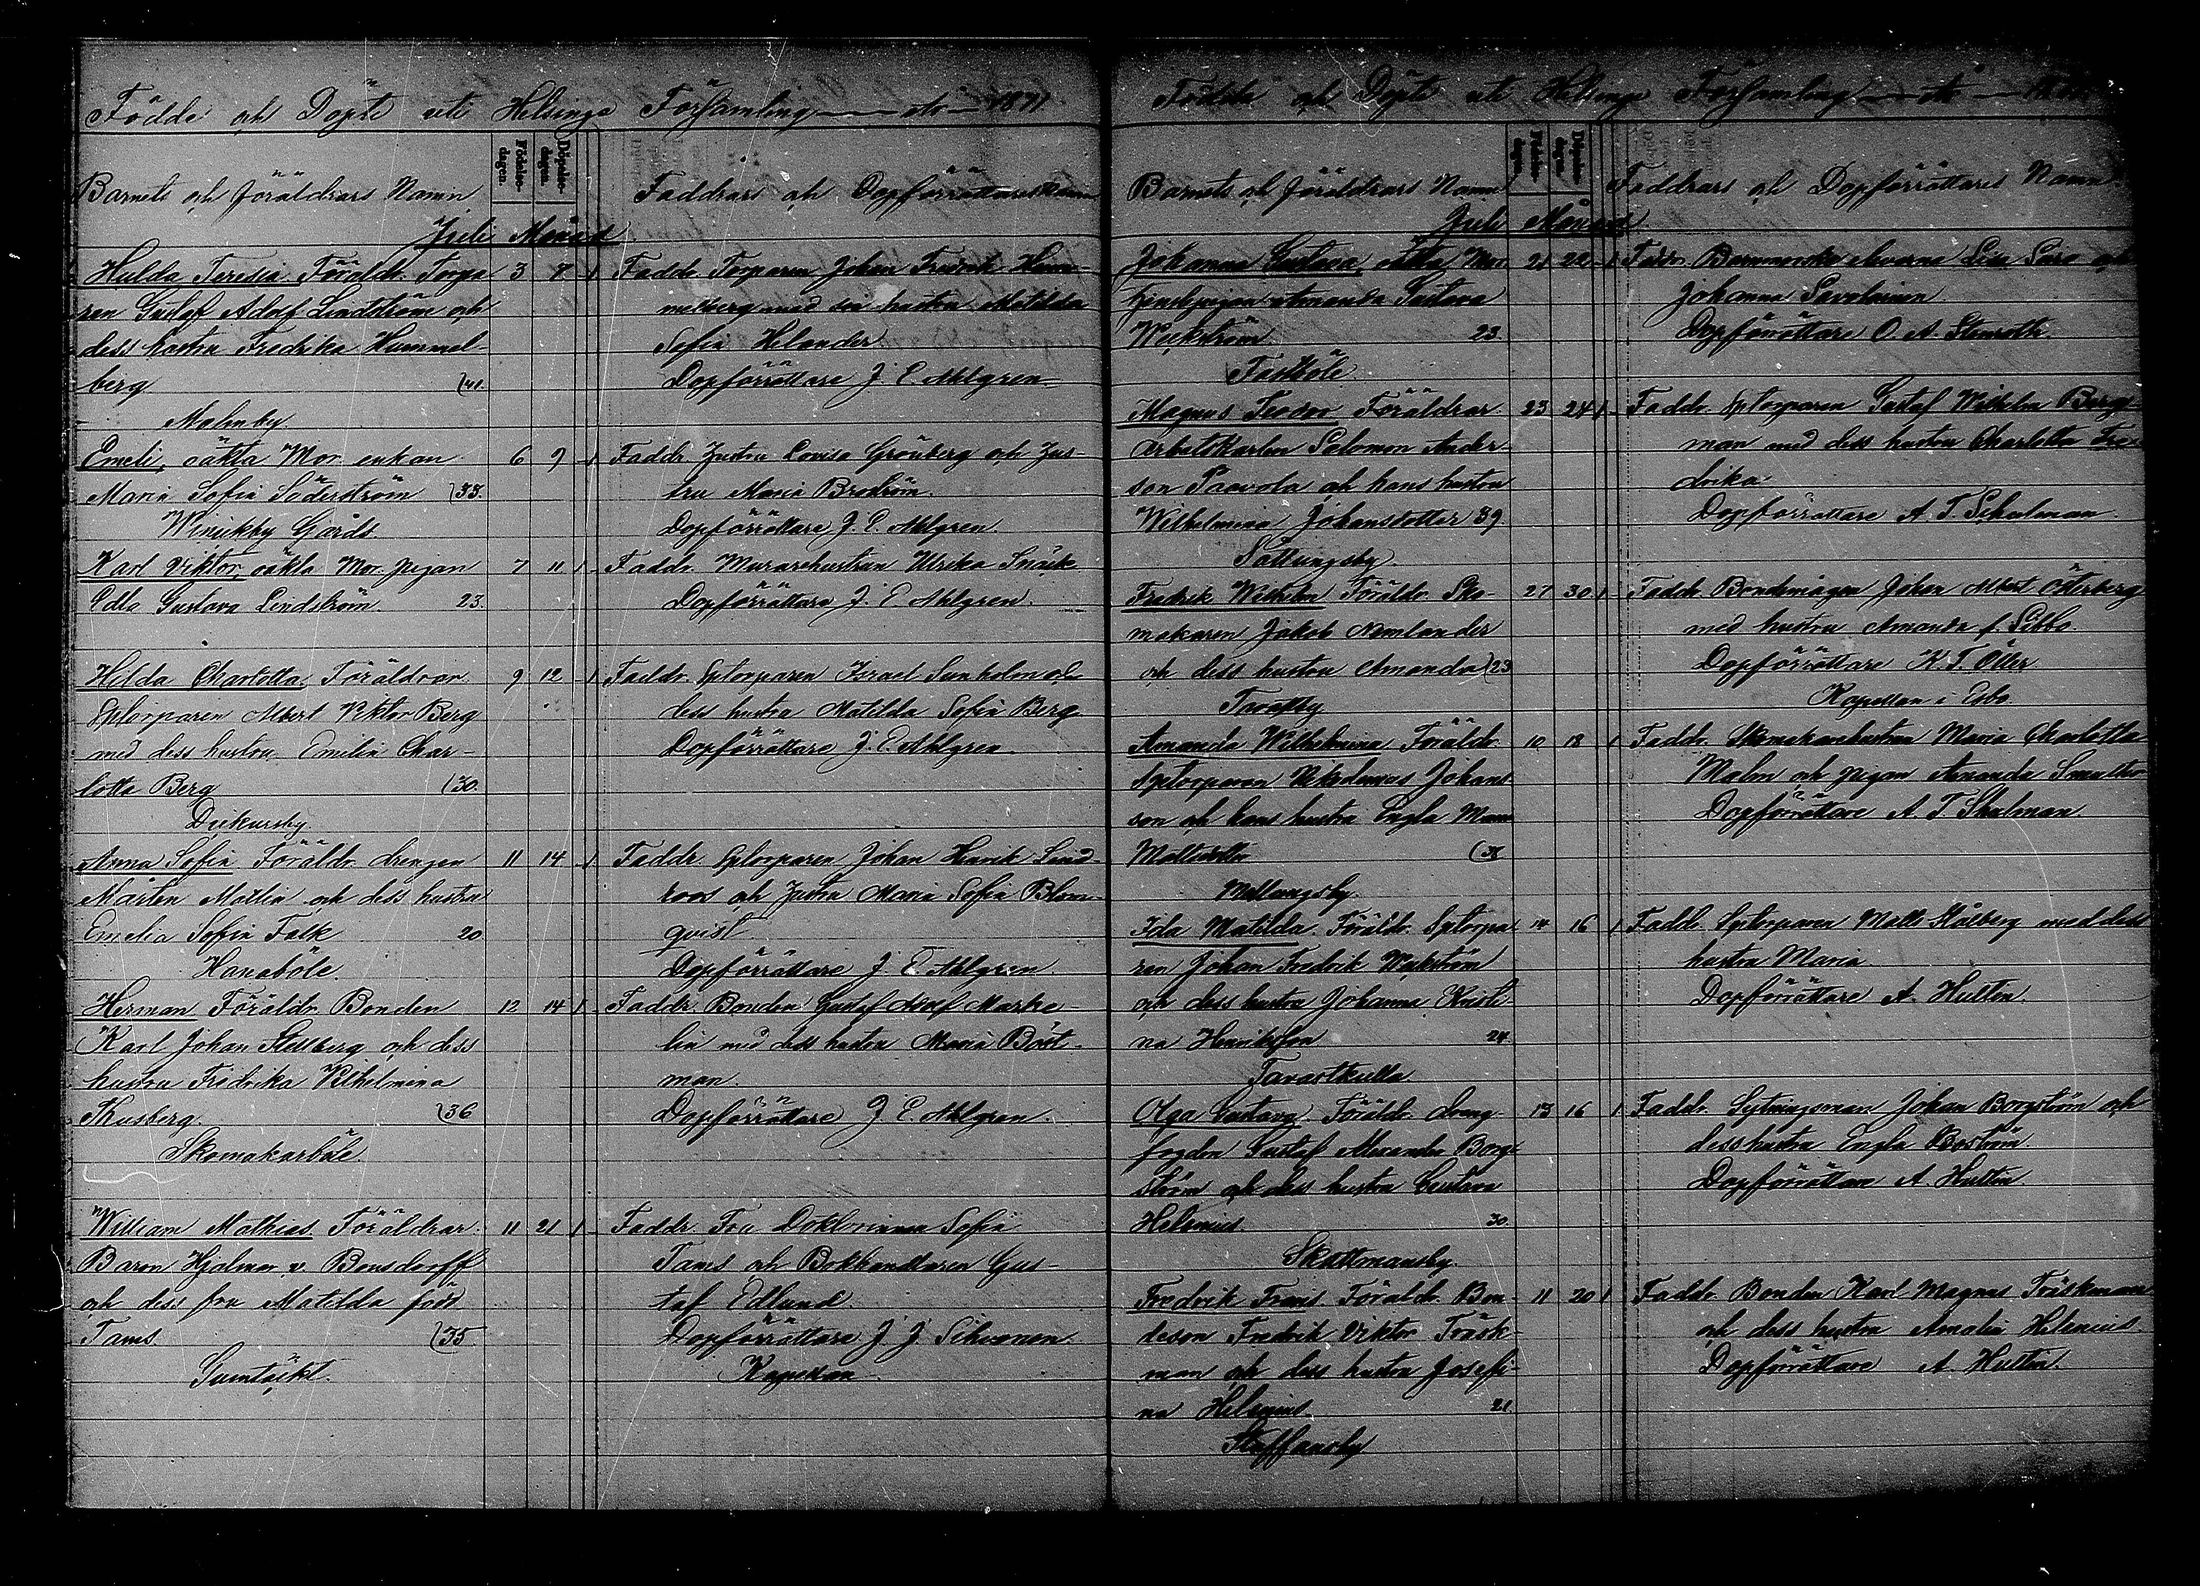 Födde och Döpte uti Helsinge Församling år 1871
Barnets och Föräldrars Namn
Födelse-dagen.
Döpelse-dagen.
Faddrars och Dopförrättares Namn
Juli Månad
Hulda Teresia. Föräldr. Torpa- 3 8 1
ren Gustaf Adolf Lindström och
dess hustru Fredrika Hummel-
berg }41.
Malmby
Faddr. Torparen Johan Fredrik Hum-
melberg med sin hustru Matilda
Sofia Helander
Dopförrättare J. E. Ahlgren
Emeli, oäkta Mor. enkan 6 9 1
Maria Sofia Söderström }33.
Winikby Gårds
Faddr. Justru Lovisa Grönberg och Jus-
tru Maria Broström.
Dopförrättare J. E. Ahlgren.
Karl Viktor, oäkta Mor. pigan 7 11 1
Edla Gustava Lindström. 23.
Faddr. Murarehustrun Ulrika Snäck
Dopförrättare J. E. Ahlgren.
Hilda Charlotta, Föräldrar 9 12 1
Sptorparen Albert Viktor Berg
med dess hustru Emilia Char-
lotta Berg }30.
Dickursby.
Faddr. Sptorparen Israel Sunholm och
dess hustru Matilda Sofia Berg
Dopförrättare J. E. Ahlgren.
Anna Sofia Föräldr. drengen 11 14 1
Mårten Mattin och dess hustru
Emelia Sofia Falk 20
Hanaböle.
Faddr. Sptorparen Johan Henrik Lind-
roos och Justru Maria Sofia Blom-
qvist
Dopförrättare J. E. Ahlgren.
Herman Föräldr. Bonden 12 14 1
Karl Johan Stellberg och dess
hustru Fredrika Vilhelmina
Thusberg. }36
Skomakarböle.
Faddr. Bonden Gustaf Adolf Marke-
lin med dess hustru Maria Böst-
man.
Dopförrättare J. E. Ahlgren.
William Mathias. Föräldrar. 11 21 1
Baron Hjalmar v. Bonsdorff
och dess fru Matilda född
Tams. }35.
Gumtäckt.
Faddr. Fru Doktorinnan Sofia
Tams och Bokhandlaren Gus-
taf Edlund.
Dopförrättare J. J. Sihvonen
Kapellan.
Födde och Döpte uti Helsinge Församling år
Barnets och Föräldrars Namn
Födelse-dagen
Döpelse-dagen
Faddrars och Dopförrättares Namn
Juli Månad
Johanna Gustava, oäkta Mor. 21 22 1
Amanda Gustava
Weckström 23.
Fastböle
Faddr. Barnmorska Lisa Saro och
Johanna Savolainen
Dopförrättare O. A. Stenroth.
Magnus Teodor Föräldrar 23 24 1
arbetskarlen Salomon Ander-
son Paavola och hans hustru
Wilhelmina Johansdotter 39
Sottungsby.
Faddr. Sptorparen Gustaf Wilhelm Berg-
man med dess hustru Charlotta Fre-
drika.
Dopförrättare A. T. Schulman
Fredrik Wilhelm Föräldr. Sko- 27 30 1
makaren Jakob Nemlander
och dess hustru Amanda }23
Tavastby
Faddr. Bondemågen Johan Albert Österberg
med hustru Amanda f. Sibbo.
Dopförrättare K. T. Öller
Kapellan i Esbo
Amanda Wilhelmina Föräldr. 10 18 1
Sptorparen Johans-
son och hans hustru Engla
Mattsdotter }38
Mellungsby.
Faddr. Skomakarehustrun Maria Charlotta
Malm och pigan Amanda
Dopförrättare A. T. Schulman.
Ida Matilda. Föräldr. Sptorpa- 14 16 1
ren Johan Fredrik Weckström
och dess hustru Johanna Kristi-
na Henriksson 24.
Tavastkulla.
Faddr. Sptorparen Matts Stålberg med dess
hustru Maria
Dopförrättare A. Hulten.
Olga Gustava. Föräldr. dreng- 13 16 1
fogden Gustaf Alexander Borg-
ström och dess hustru Gustava
Helenius 30.
Skattmansby.
Faddr. Sytningsman Johan Borgström och
dess hustru Engla Boström.
Dopförrättare A. Hultin
Fredrik Frans Föräldr. Bon- 11 20 1
deson Fredrik Viktor Träsk-
man och dess hustru Josefi-
na Helenius. 21.
Staffansby
Faddr. Bonden Karl Magnus Träskman
och dess hustru Amalia Helenius.
Dopförrättare A. Hultin.